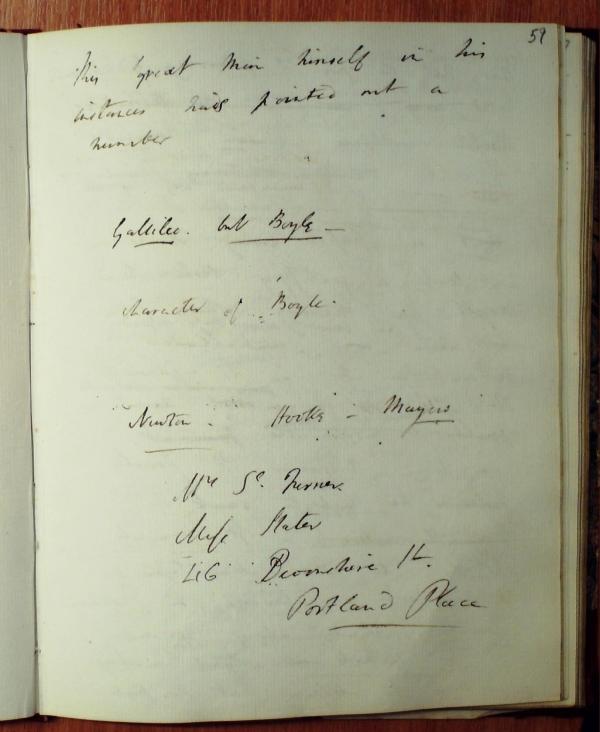 59
This great man himself in his
instances has pointed out a
number
Galileo. but Boyle —
Character of Boyle.
Newton. Hooke - Mayow
Mr Sl. Turner.
Miss Slater
46 Devonshire St.
Portland Place